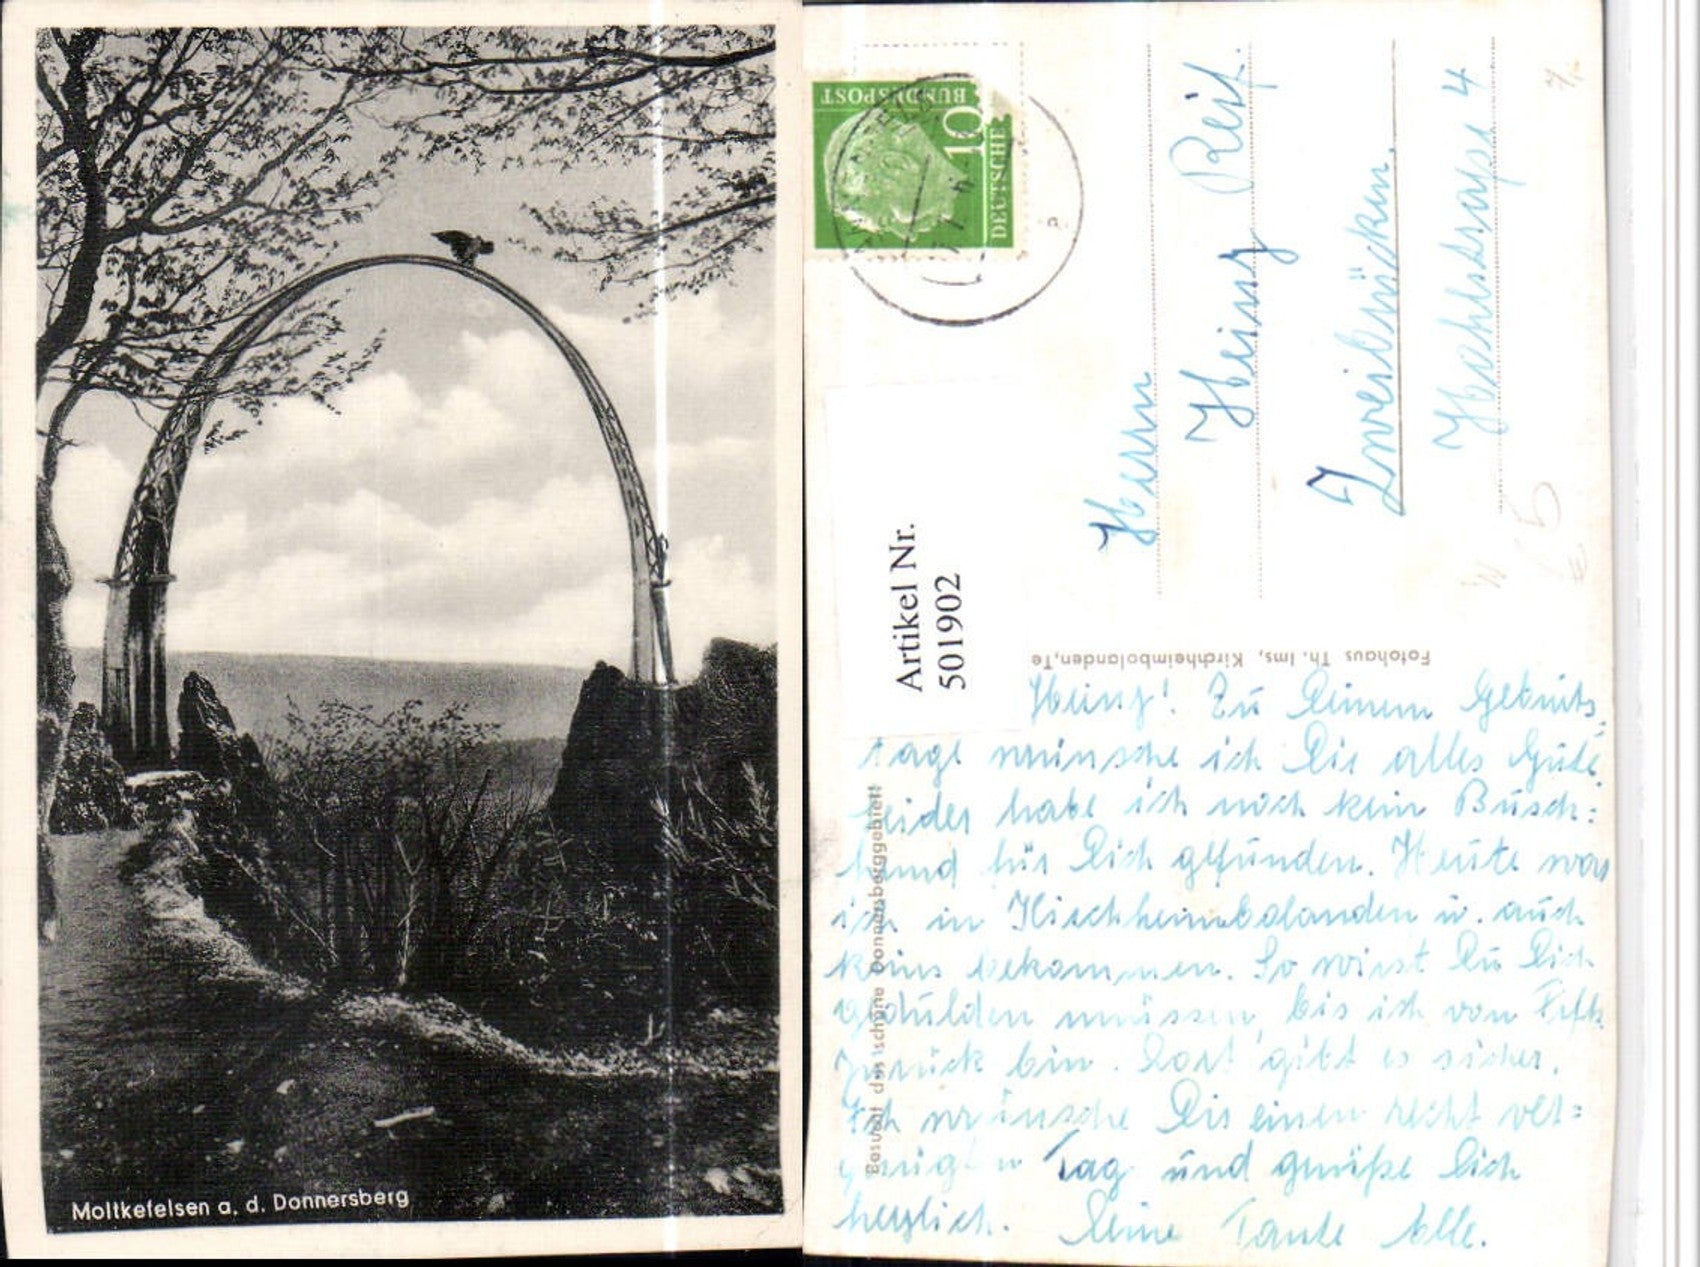 Moltkefelsen a. d. Donnersberg
DEUTSCHE
BUNDESPOST
10
Artikel Nr.
501902
Herrn
Heinz Reif.
Zweibrücken.
Hofstrasse 4
Fotohaus Th. Ims, Kirchheimbolanden, Te
Besucht das schöne Donnersberggebiet!
Heinz! Zu Deinem Geburts-
tage wünsche ich Dir alles Gute.
Leider habe ich noch kein Busch=
hemd für Dich gefunden. Heute war
ich in Kirchheimbolanden u. auch
keins bekommen. So wirst Du Dich
gedulden müssen, bis ich von
zurück bin. Dort gibt es sicher.
Ich wünsche Dir einen recht ver=
gnügten Tag und grüße Dich
herzlich. Deine Tante Elle.